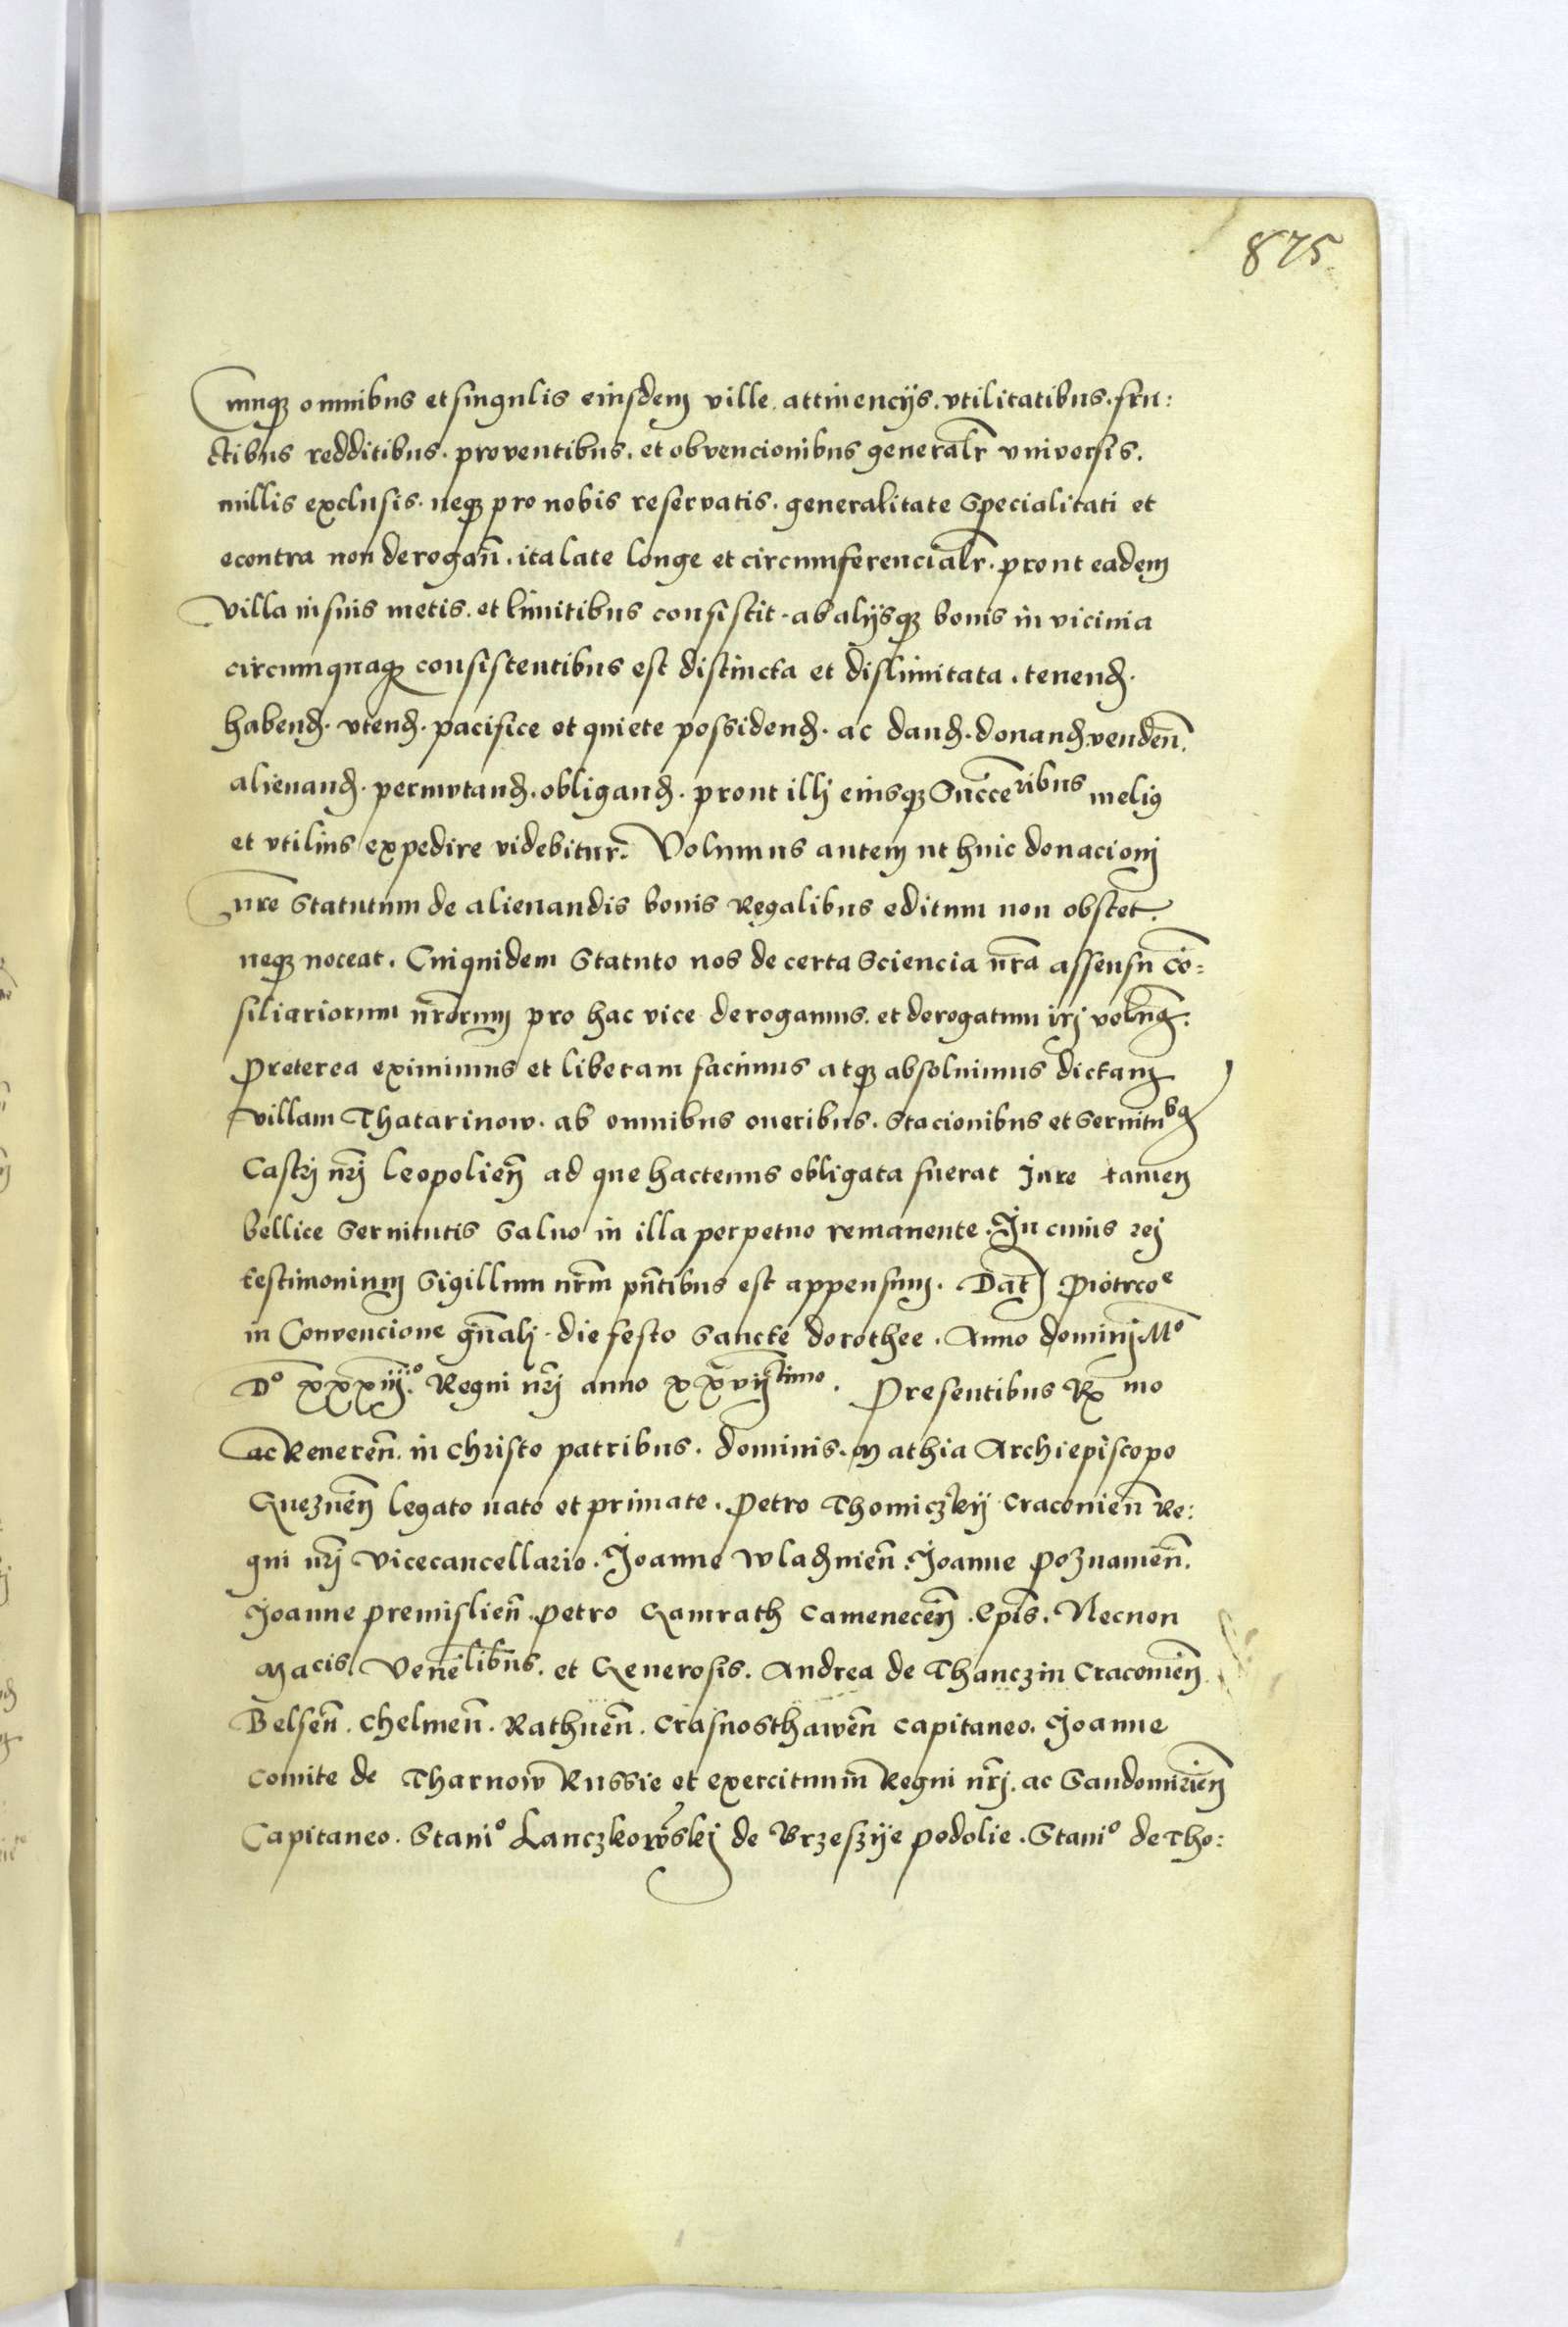 875
Cumqꝫ omnibus et singulis eiusdem ville. attinencijs. vtilitatibus. fru:
ctibus redditibus. proventibus. et obvencionibus generalr̄ vniversis.
nullis exclusis. neqꝫ pro nobis reservatis. generalitate Specialitati et
econtra non derogan̄. ita late longe et circumferencialr̄. prout eadem
villa in suis metis. et limitibus consistit. ab alijsqꝫ bonis in vicinia
circumquaqꝫ consistentibus est distincta et dislimitata. tenenđ.
habenđ. vtenđ. pacifice et quiete possidenđ. ac danđ. donanđ. venden̄.
alienanđ. permvtanđ. obliganđ. prout illj eiusqꝫ Succeribus meliꝰ
et vtilius expedire videbitur. Volumus autem ut huic donacionj
nr̄e Statutum de alienandis bonis Regalibus editum non obstet.
neqꝫ noceat. Cuiquidem Statuto nos de certa Sciencia nr̄a assensu cō:
siliariorum nr̄orum pro hac vice derogamus. et derogatum irj volum9.
Preterea eximimus et liberam facimus atqꝫ absoluimus dictam
villam Thatarinow. ab omnibus oneribus. Stacionibus et Seruitubꝫ
Castrj nr̄j Leopolien̄ ad que hactenus obligata fuerat Jure tamen
bellice Seruitutis Saluo in illa perpetuo remanente. In cuius rej
testimonium Sigillum nr̄m pn̄tibus est appensum. Dat̄ Piotrcoᵉ
in Convencione gn̄alj. die festo Sancte dorothee. Anno dominj Mº
Dº xxxiijº. Regni nr̄j anno xxvijtimo. Presentibus Rx̄mo
ac Reueren̄. in christo patribus. dominis. Mathia Archiepiscopo
Gneznen̄ legato nato et primate. Petro Thomiczkij Cracouien̄ Re:
gni nr̄j vicecancellario. Joanne Wladnien̄. Joanne Poznanien̄.
Joanne premislien̄. Petro Gamrath Camenecen̄. Ep̄is. Necnon
Macis. Venēlibus. et Generosis. Andrea de Thanczin Cracouien̄
Belsen̄. Chelmen̄. Rathnen̄. Crasnosthawen̄ capitaneo. Joanne
Comite de Tharnow Russie et exercituum Regni nr̄j. ac Sandomirien̄
Capitaneo. Staniº Lanczkowskj de Brzeszije podolie. Staniº de Tho: